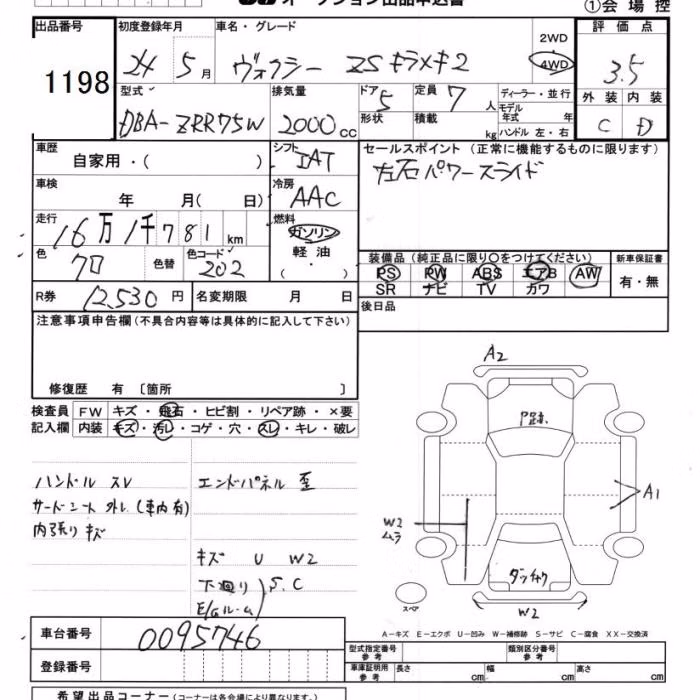 オークション出品申込書
①会場控
出品番号
1198
初度登録年月
24 5月
車名・グレード
ヴォクシー ZS キラメキ2
2WD
4WD
評価点
3.5
型式
DBA-ZRR75W
排気量
2000cc
ドア
5
形状
定員
7人
積載
kg
ディーラー・並行
モデル
年式 年
ハンドル 左・右
外装 内装
C D
車歴
自家用・( )
シフト
IAT
セールスポイント(正常に機能するものに限ります)
左右パワースライド
車検
年 月( 日)
冷房
AAC
走行
16万1千781km
燃料
ガソリン
軽油
( ・ )
色
クロ
色替
色コード
202
装備品(純正品に限り〇をつけてください)
PS PW ABS エアB AW
SR ナビ TV カワ
新車保証書
有・無
R券
12,530円
名変期限 月 日
後日品
注意事項申告欄(不具合内容等は具体的に記入して下さい)
修復歴 有〔箇所 〕
検査員 FW キズ・飛石・ヒビ割・リペア跡・×要
記入欄 内装 キズ・汚レ・コゲ・穴・スレ・キレ・破レ
ハンドル スレ
サードシート外し(車内有)
内張りキズ
エンドパネル 歪
キズ U W2
下廻り
E/Gルーム
S.C
A2
A1
W2
ムラ
W2
スペア
A-キズ E-エクボ U-凹み W-補修跡 S-サビ C-腐食 XX-交換済
車台番号
0095746
登録番号
型式指定番号
参考
類別区分番号
参考
車庫証明用
参考
長さ cm 幅 cm 高さ cm
希望出品コーナー(コーナーは各会場により異なります。)